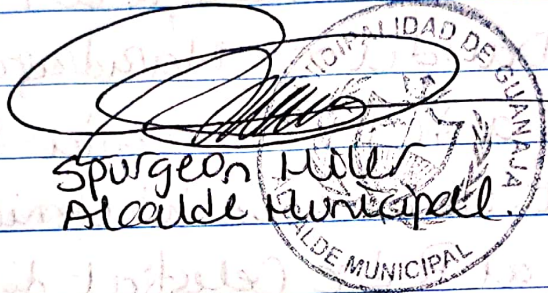 Spurgeon Miller
Alcalde Municipal.
MUNICIPALIDAD DE GUANAJA
ALCALDE MUNICIPAL